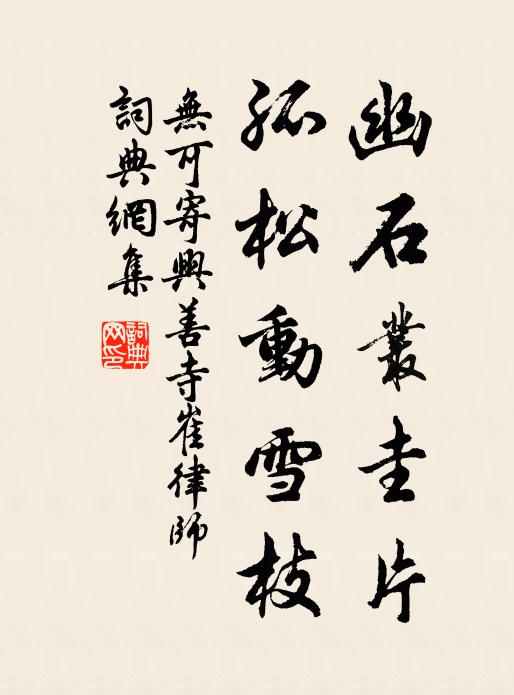 幽石叢圭片
孤松動雪枝
無可寄興善寺崔律師
詞典網集
詞典网印